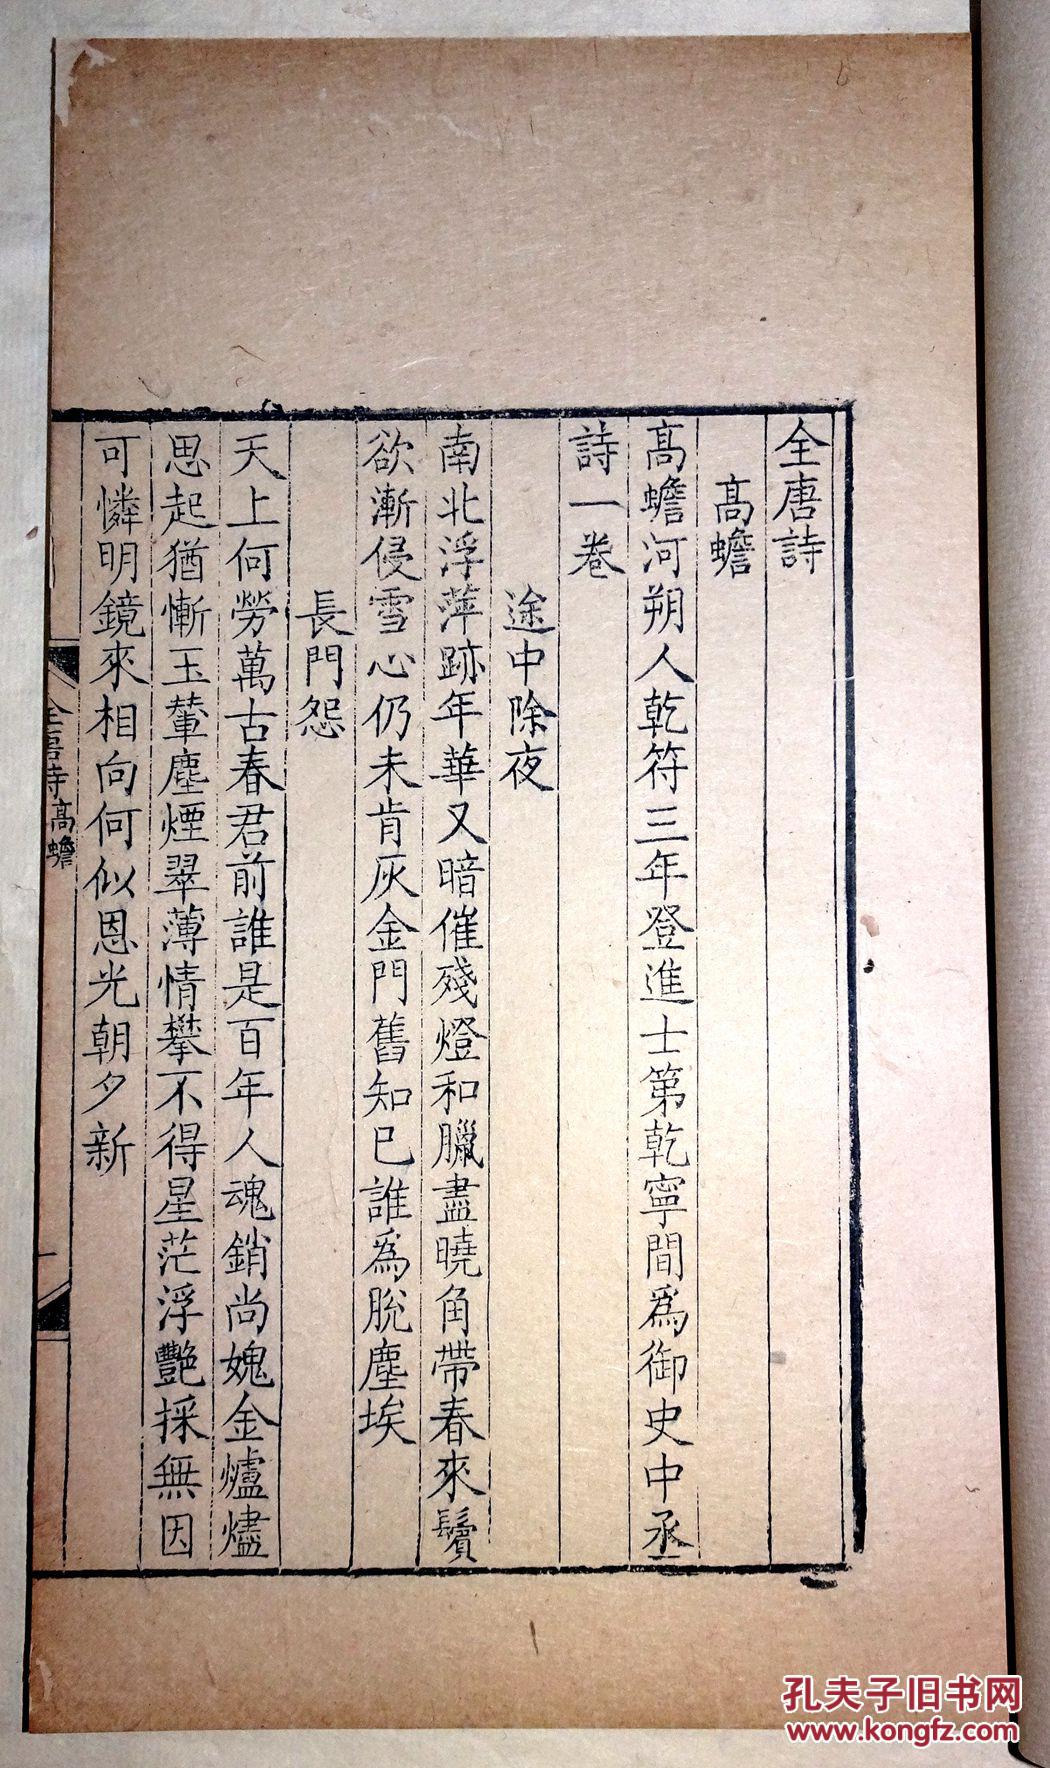 全唐詩
高蟾
高蟾河朔人乾符三年登進士第乾寧間爲御史中丞
詩一卷
途中除夜
南北浮萍跡年華又暗催殘燈和臘盡曉角帶春來鬢
欲漸侵雪心仍未肯灰金門舊知已誰爲脫塵埃
長門怨
天上何勞萬古春君前誰是百年人魂銷尚媿金爐燼
思起猶慚玉輦塵煙翠薄情攀不得星茫浮艷採無因
可憐明鏡來相向何似恩光朝夕新
全唐詩 高蟾
一
孔夫子旧书网
www.kongfz.com